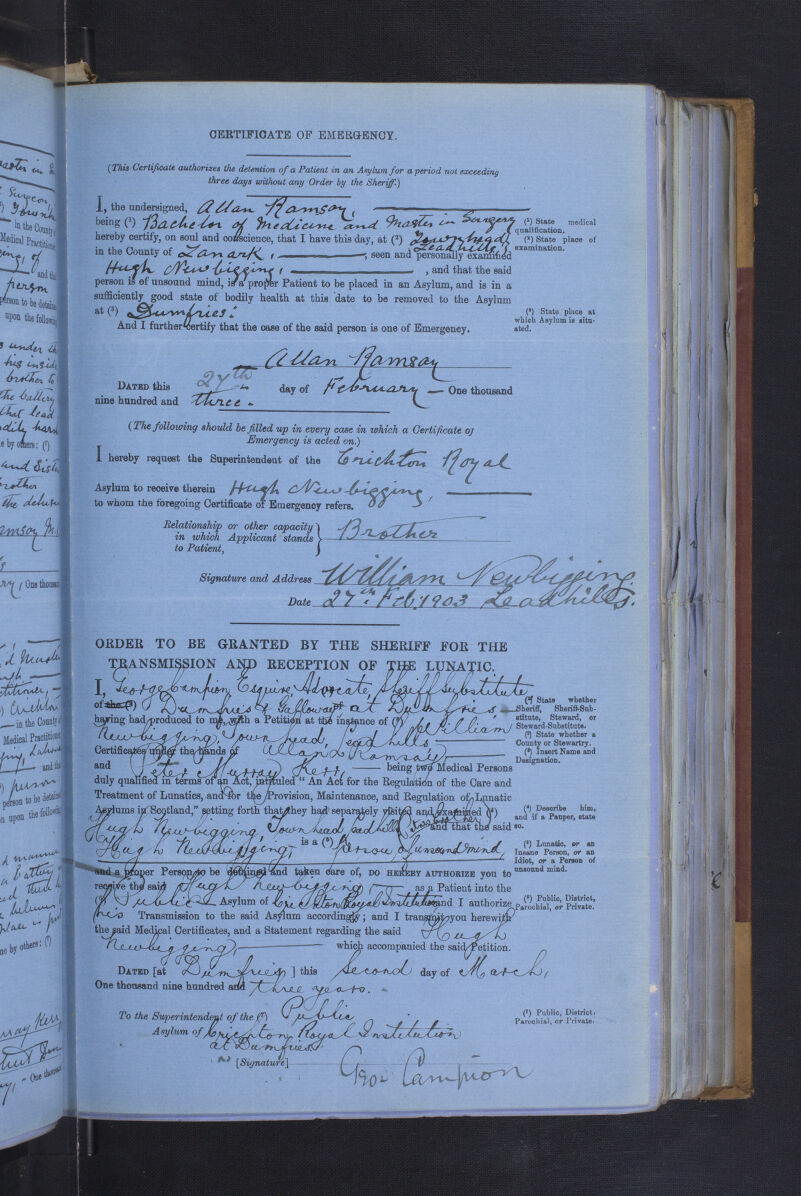 CERTIFICATE OF EMERGENCY.
(This Certificate authorizes the detention of a Patient in an Asylum for a period not exceeding
three days without any Order by the Sheriff.)
I, the undersigned, Allan Ramsay,
being (¹) Bachelor of Medicine and Master in Surgery
hereby certify, on soul and conscience, that I have this day, at (²) Townhead, Leadhills,
in the County of Lanark, seen and personally examined
Hugh Newbigging, and that the said
person is of unsound mind, is a proper Patient to be placed in an Asylum, and is in a
sufficiently good state of bodily health at this date to be removed to the Asylum
at (³) Dumfries.
And I further certify that the case of the said person is one of Emergency.
(¹) State medical
qualification.
(²) State place of
examination.
(³) State place at
which Asylum is situ-
ated.
Allan Ramsay
DATED this 27th day of February — One thousand
nine hundred and three.
(The following should be filled up in every case in which a Certificate of
Emergency is acted on.)
I hereby request the Superintendent of the Crichton Royal
Asylum to receive therein Hugh Newbigging,
to whom the foregoing Certificate of Emergency refers.
Relationship or other capacity
in which Applicant stands
to Patient,
Brother
Signature and Address William Newbigging
Date 27th Feb. 1903 Leadhills.
ORDER TO BE GRANTED BY THE SHERIFF FOR THE
TRANSMISSION AND RECEPTION OF THE LUNATIC.
I, George Campion Esquire Advocate, Sheriff Substitute
of the Dumfries & Galloway at Dumfries,
having had produced to me, with a Petition at the instance of William
Newbigging, Townhead, Leadhills
Certificates under the hands of Allan Ramsay
and Peter Murray Kerr, being two Medical Persons
duly qualified in terms of an Act, intituled "An Act for the Regulation of the Care and
Treatment of Lunatics, and for the Provision, Maintenance, and Regulation of Lunatic
Asylums in Scotland," setting forth that they had separately visited and examined (⁴)
Hugh Newbigging, Townhead, Leadhills, his brother and that the said
Hugh Newbigging, is a (⁵) person of unsound mind,
and a proper Person to be detained and taken care of, DO HEREBY AUTHORIZE you to
receive the said Hugh Newbigging as a Patient into the
Public Asylum of Crichton Royal Institution and I authorize
his Transmission to the said Asylum accordingly; and I transmit you herewith
the said Medical Certificates, and a Statement regarding the said Hugh
Newbigging, which accompanied the said Petition.
State whether
Sheriff, Sheriff-Sub-
stitute, Steward, or
Steward-Substitute.
State whether a
County or Stewartry.
Insert Name and
Designation.
Describe him,
and if a Pauper, state
so.
Lunatic, or an
Insane Person, or an
Idiot, or a Person of
unsound mind.
Public, District,
Parochial, or Private.
DATED [at Dumfries] this Second day of March,
One thousand nine hundred and three years.
To the Superintendent of the Public
Asylum of Crichton Royal Institution
at Dumfries.
[Signature] Geo. Campion
Public, District,
Parochial, or Private.